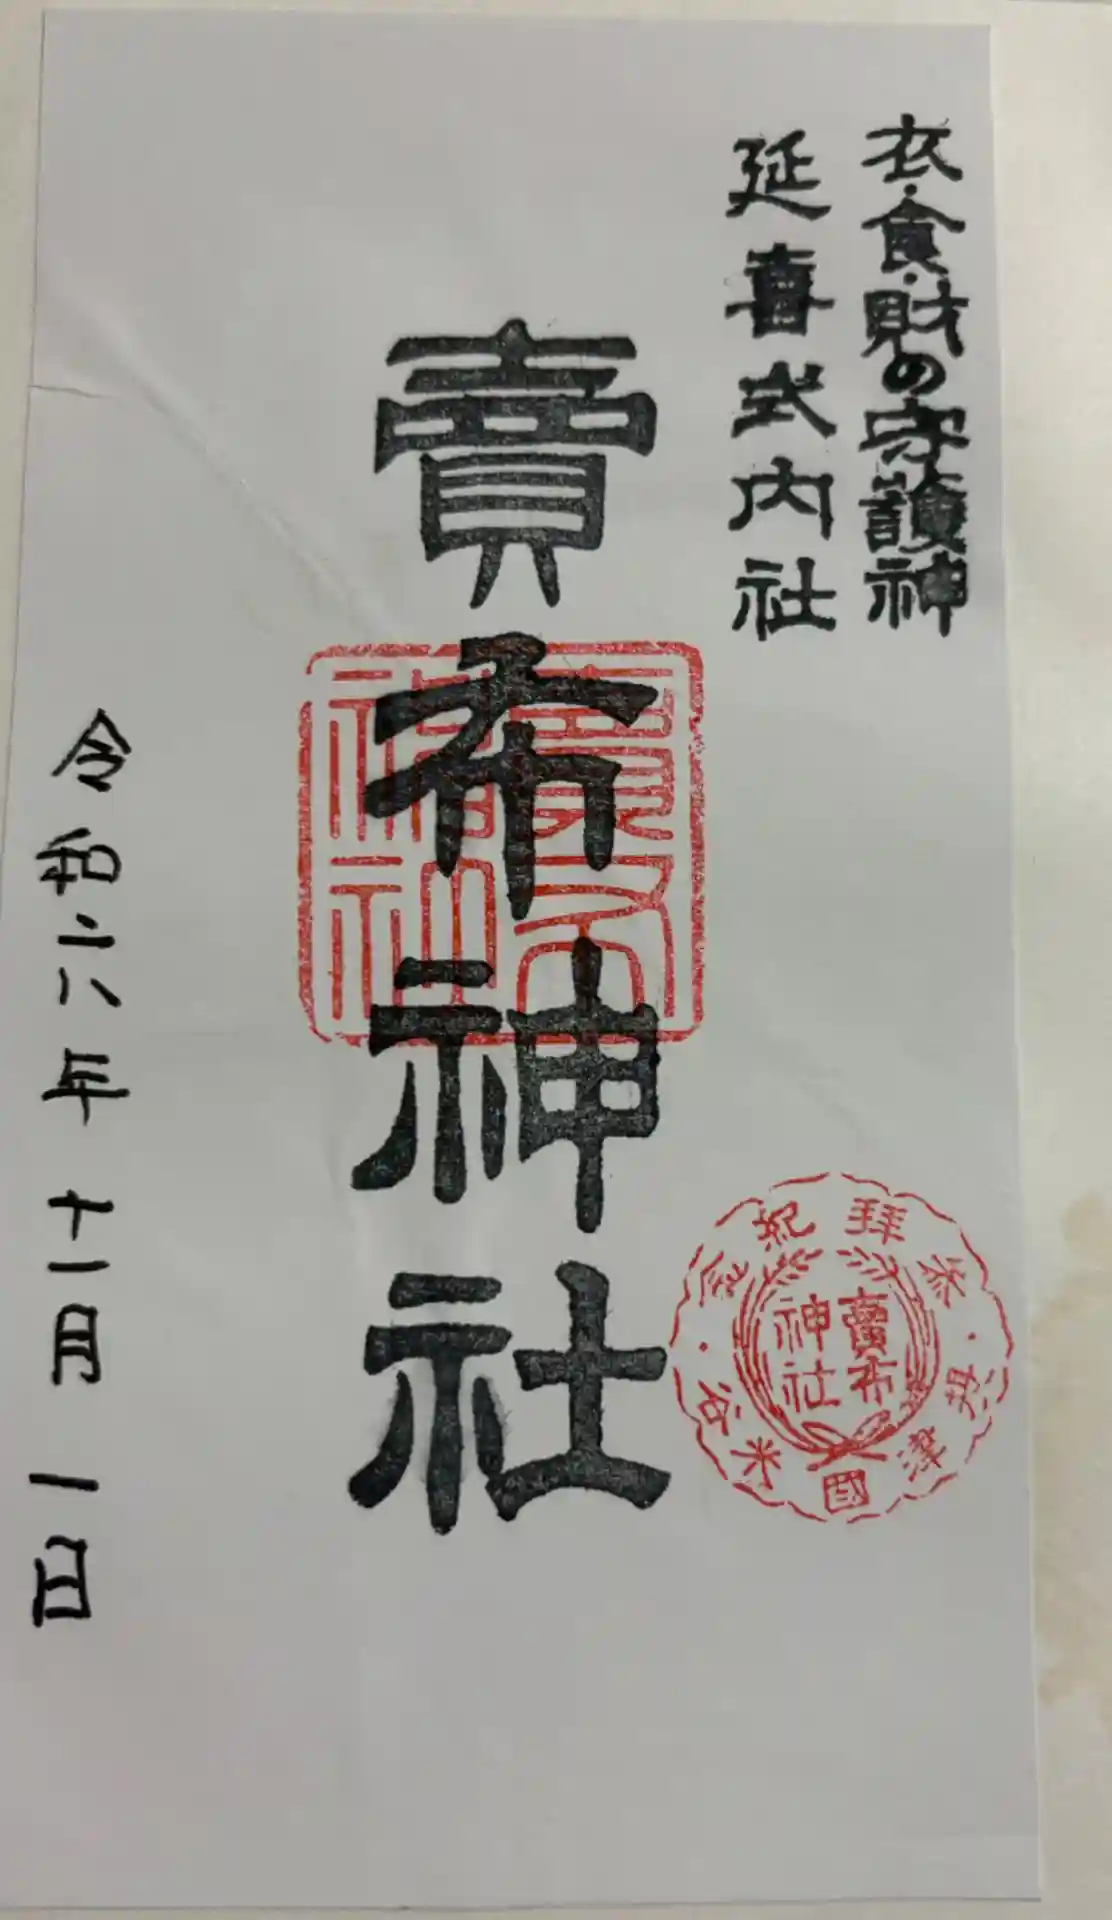 衣・食・財の守護神
延喜式内社
賣布神社
賣布神社
参拝紀念
摂津國米谷
賣布
神社
令和六年十一月一日